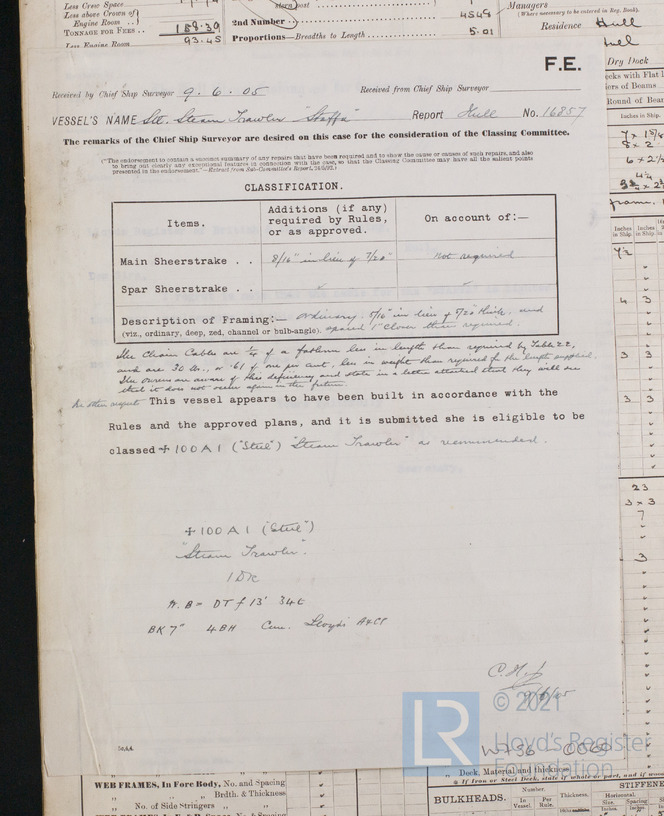 Less Crew Space
Less above Crown of
Engine Room
TONNAGE FOR FEES 158.39
Less Engine Room 93.45
2nd Number 4548
Proportions—Breadths to Length 5.01
Managers
(Where necessary to be entered in Reg. Book).
Residence Hull
Hull
Dry Dock
F.E.
Received by Chief Ship Surveyor 9.6.05 Received from Chief Ship Surveyor
VESSEL'S NAME Stl Steam Trawler "Staffa" Report Hull No. 16857
The remarks of the Chief Ship Surveyor are desired on this case for the consideration of the Classing Committee.
("The endorsement to contain a succinct summary of any repairs that have been required and to show the cause or causes of such repairs, and also
to bring out clearly any exceptional features in connection with the case, so that the Classing Committee may have all the salient points
presented in the endorsement."—Extract from Sub-Committee's Report,
CLASSIFICATION.
Items. Additions (if any) required by Rules, or as approved. On account of:—
Main Sheerstrake . . 8/16" in lieu of 7/20" not required
Spar Sheerstrake . . ✓ ✓
Description of Framing:— ordinary 5/16" in lieu of 5/20" thick and
(viz., ordinary, deep, zed, channel or bulb-angle). spaced 1" closer than required.
The Chain Cables are ¼ of a fathom less in length than required by Table 22,
and are 30 lbs., or .61 of one per cent. less in weight than required for the length supplied.
The owners are aware of this deficiency and state in a letter attached that they will see
that it does not occur again in the future.
In other respects This vessel appears to have been built in accordance with the
Rules and the approved plans, and it is submitted she is eligible to be
classed ✠ 100 A 1 ("Steel") "Steam Trawler" as recommended.
✠ 100 A 1 (Steel")
"Steam Trawler".
1 DK
W.B= DT f 13' 34t
BK 7" 4BH Cem. Lloyds A&CP
9/6/05
W756 0060
LR
© 2021
Lloyd's Register
Foundation
WEB FRAMES, In Fore Body, No. and Spacing
" " Brdth. & Thickness
" No. of Side Stringers "
" Deck, Material and thickness
BULKHEADS.
Number.
In Vessel. Per Rule.
Thickness.
STIFFENE
Horizontal.
Size. Spacing